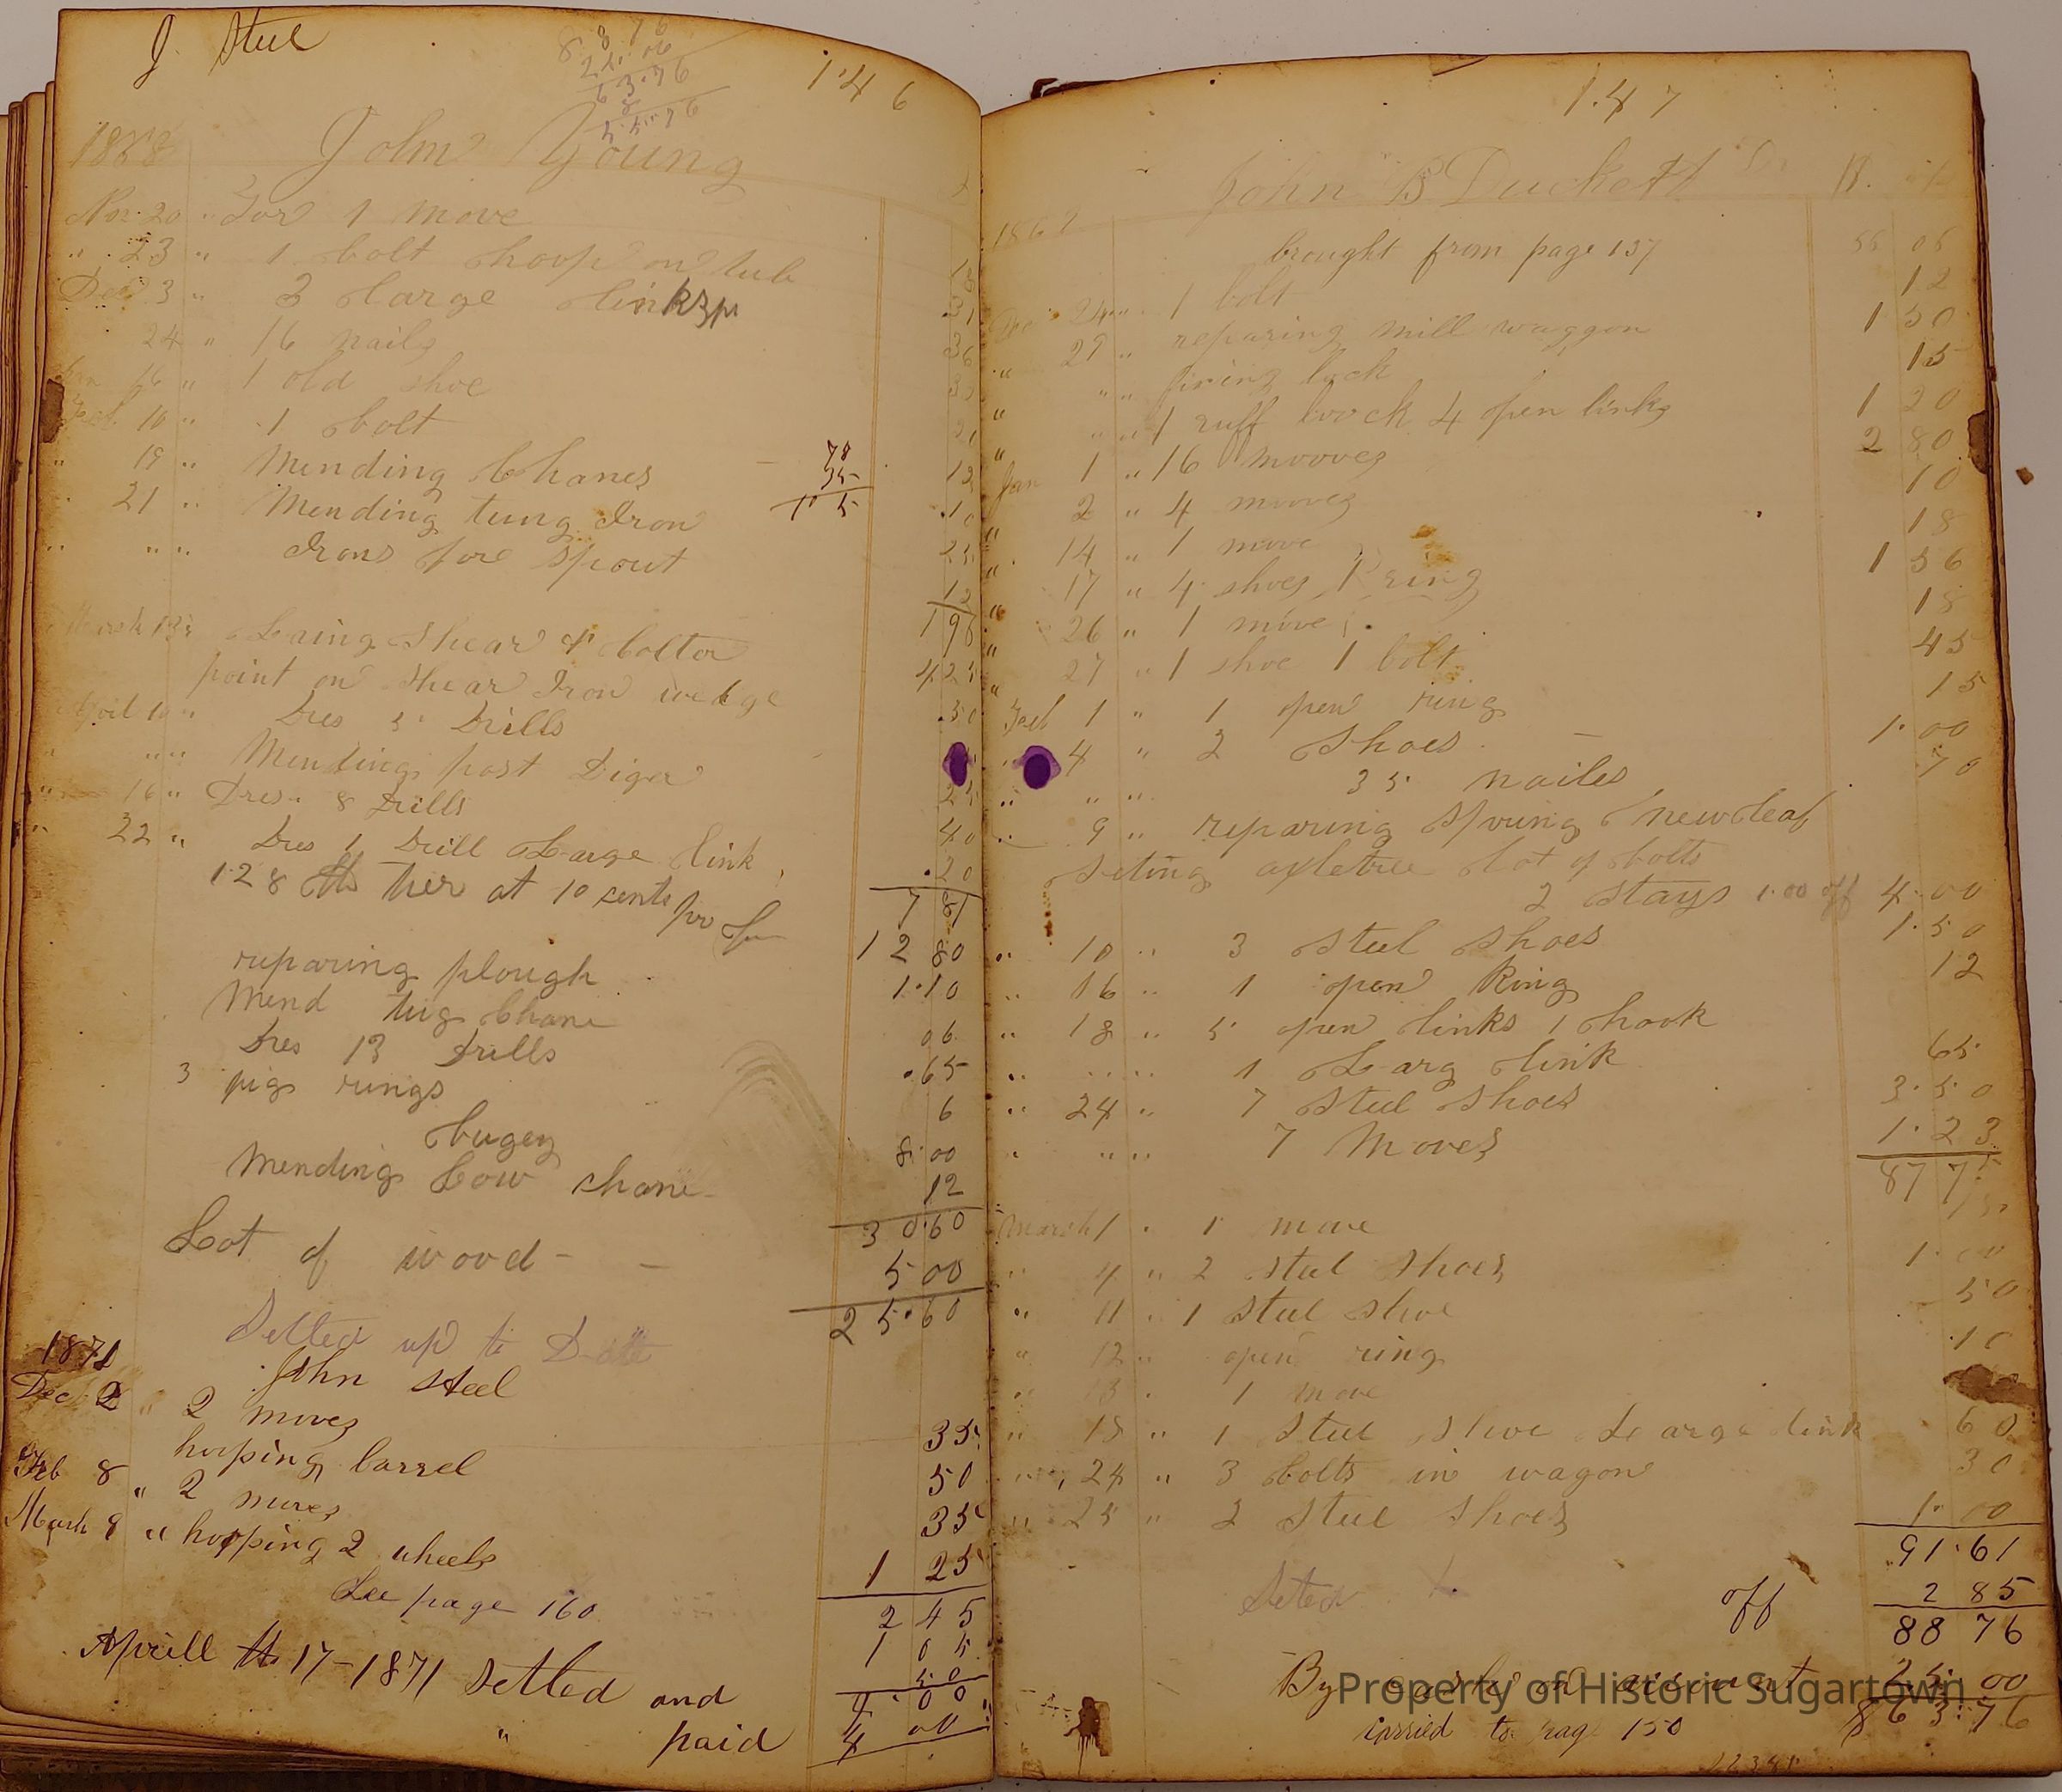 J. Steel
8 8 7 6
6 3.76
146
John Young
Nov 20 " For 1 move
" 23 " 1 bolt hoop on tub
Dec 3 " 3 Large links
24 " 16 nails
16 " 1 old shoe
Feb 10 " 1 bolt
" 19 " Mending Chanes 12
" 21 " Mending tung Iron .10
" " " Irons fore Spout 25
78
12
1 98
Laing Shear & bolter 4 25
point on Shear Iron wedge .50
April 10 " Dres 5 Drills
" " " Mending post Diger 25
" 16 " Dres 8 Drills 40
" 22 " Dres 1 Drill Large Link .20
7 81
128 lb tier at 10 cents pr 12 80
reparing plough 1.10
Mend tug Chane 06
Dres 13 Drills .65
3 pigs rings 6
bugey 8.00
Mending Cow chane 12
30.60
Lot of wood - - 5 00
25.60
Setled up to Date
1871
John Steel
Dec 2 " 2 moves 35
hooping barrel 50
Feb 8 " 2 moves 35
March 9 " hopping 2 wheels 1 25
See page 160 2 45
1 05
50
Aprill th 17-1871 Setled and 4.00
" paid 4 00
147
John B Duckett
brought from page 137
24 " 1 bolt 12
" 29 " reparing mill waggon 1 50
" " " fixing lock 15
" " " 1 ruff lock 4 open links 1 20
Jan 1 " 16 mooves 2 80
" 2 " 4 mooves 10
" 14 " 1 move 18
" 17 " 4 shoes 1 ring 1 56
" 26 " 1 move 18
" 27 " 1 shoe 1 bolt 45
Feb 1 " 1 open ring 15
" 4 " 2 Shoes - 1.00
" " " 35 nailes .70
" 9 " reparing Spring new leaf
Seting axletree Lot of bolts
2 Stays 1.00 off 4.00
" 10 " 3 Steel Shoes 1.50
" 16 " 1 open Ring 12
" 18 " 5 open links 1 hook
" " " 1 Larg Link 65
" 24 " 7 Steel Shoes 3.50
" " " 7 Moves 1.23
87 75
March 1 " 1 move
" 4 " 2 Steel Shoes 1.00
" 11 " 1 Steel Shoe 50
" 12 " open ring .10
" 13 " 1 move
" 18 " 1 Steel Shoe Large link 60
" 24 " 3 bolts in wagon 30
" 25 " 2 Steel Shoes 1.00
91.61
Seted off 2 85
88 76
By cash on account 25 00
63.76
carried to page 150
Property of Historic Sugartown